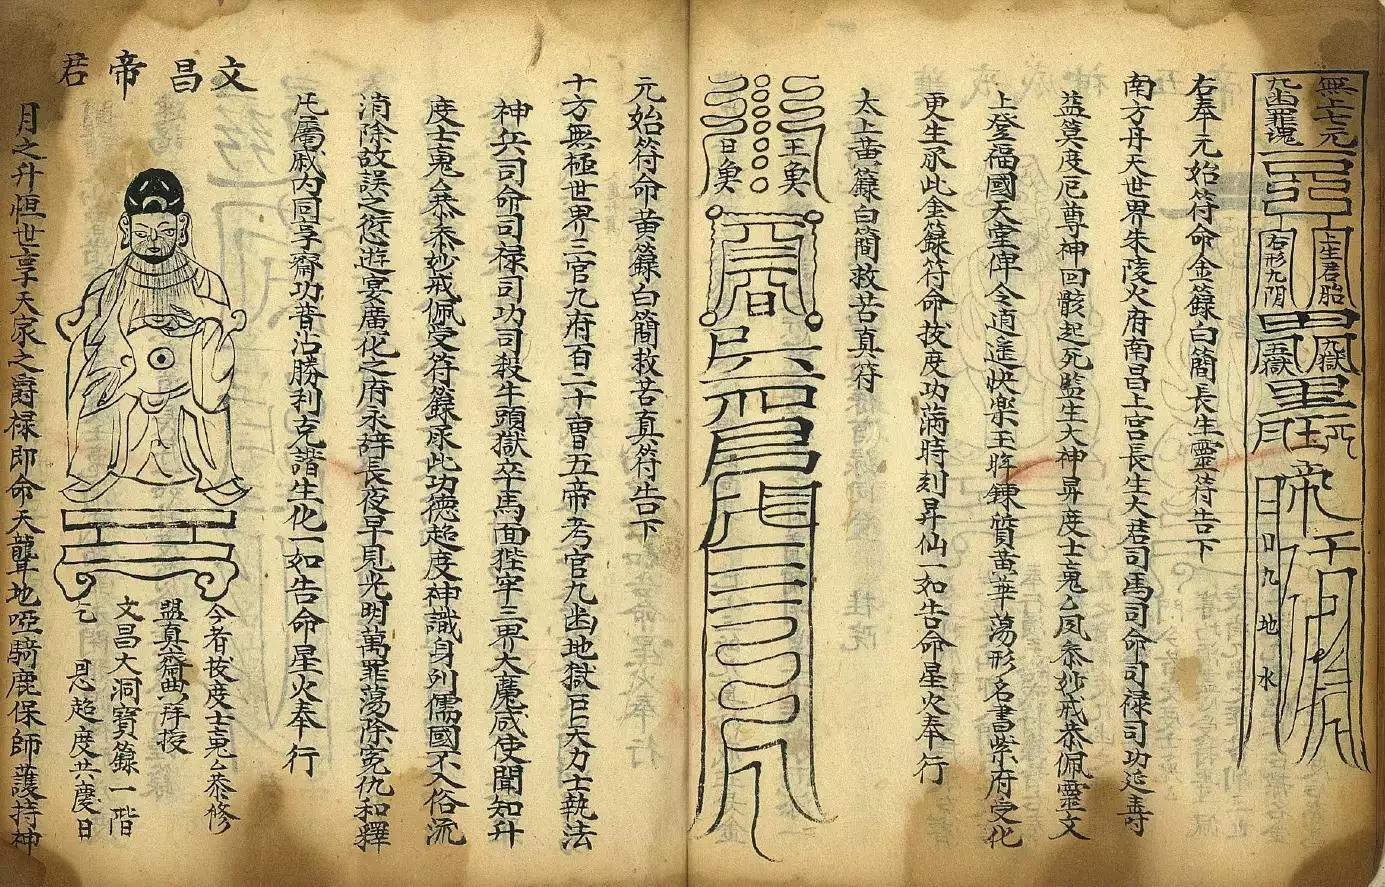 無上七元
九幽罪魂
右奉元始符命金籙白簡長生靈符告下
南方丹天世界朱陵火府南昌上宮長生大君司馬司命司禄司功延壽
益筭度厄尊神回骸起死監生大神昇度士䰟厶夙叅妙戒恭佩靈文
上登福國天堂俾令逍遥快樂王眸鍊質黃華蕩形名書紫府受化
更生承此金籙符命拔度功满時刻昇仙一如告命星火奉行
太上黃籙白簡救苦真符
元始符命黃籙白簡救苦真符告下
十方無極世界三官九府百二十曹五帝考官九幽地獄巨天力士執法
神兵司命司禄司功司殺牛頭獄卒馬面狴牢三界大魔咸使聞知升
度士䰟厶恭叅妙戒佩受符籙承此功德超度神識身列儒國不入俗流
消除故誤之愆遊宴廣化之府永辞長夜早見光明萬罪蕩除寃仇和釋
凡屬戚内同享齋功普沾勝利克諧生化一如告命星火奉行
文昌帝君
今者拔度士䰟厶恭修
盟真齋典拜授
文昌大洞寶籙一階
乞 恩超度共慶日
月之升恒世享天家之爵禄即命天聾地啞騎鹿保師護持神